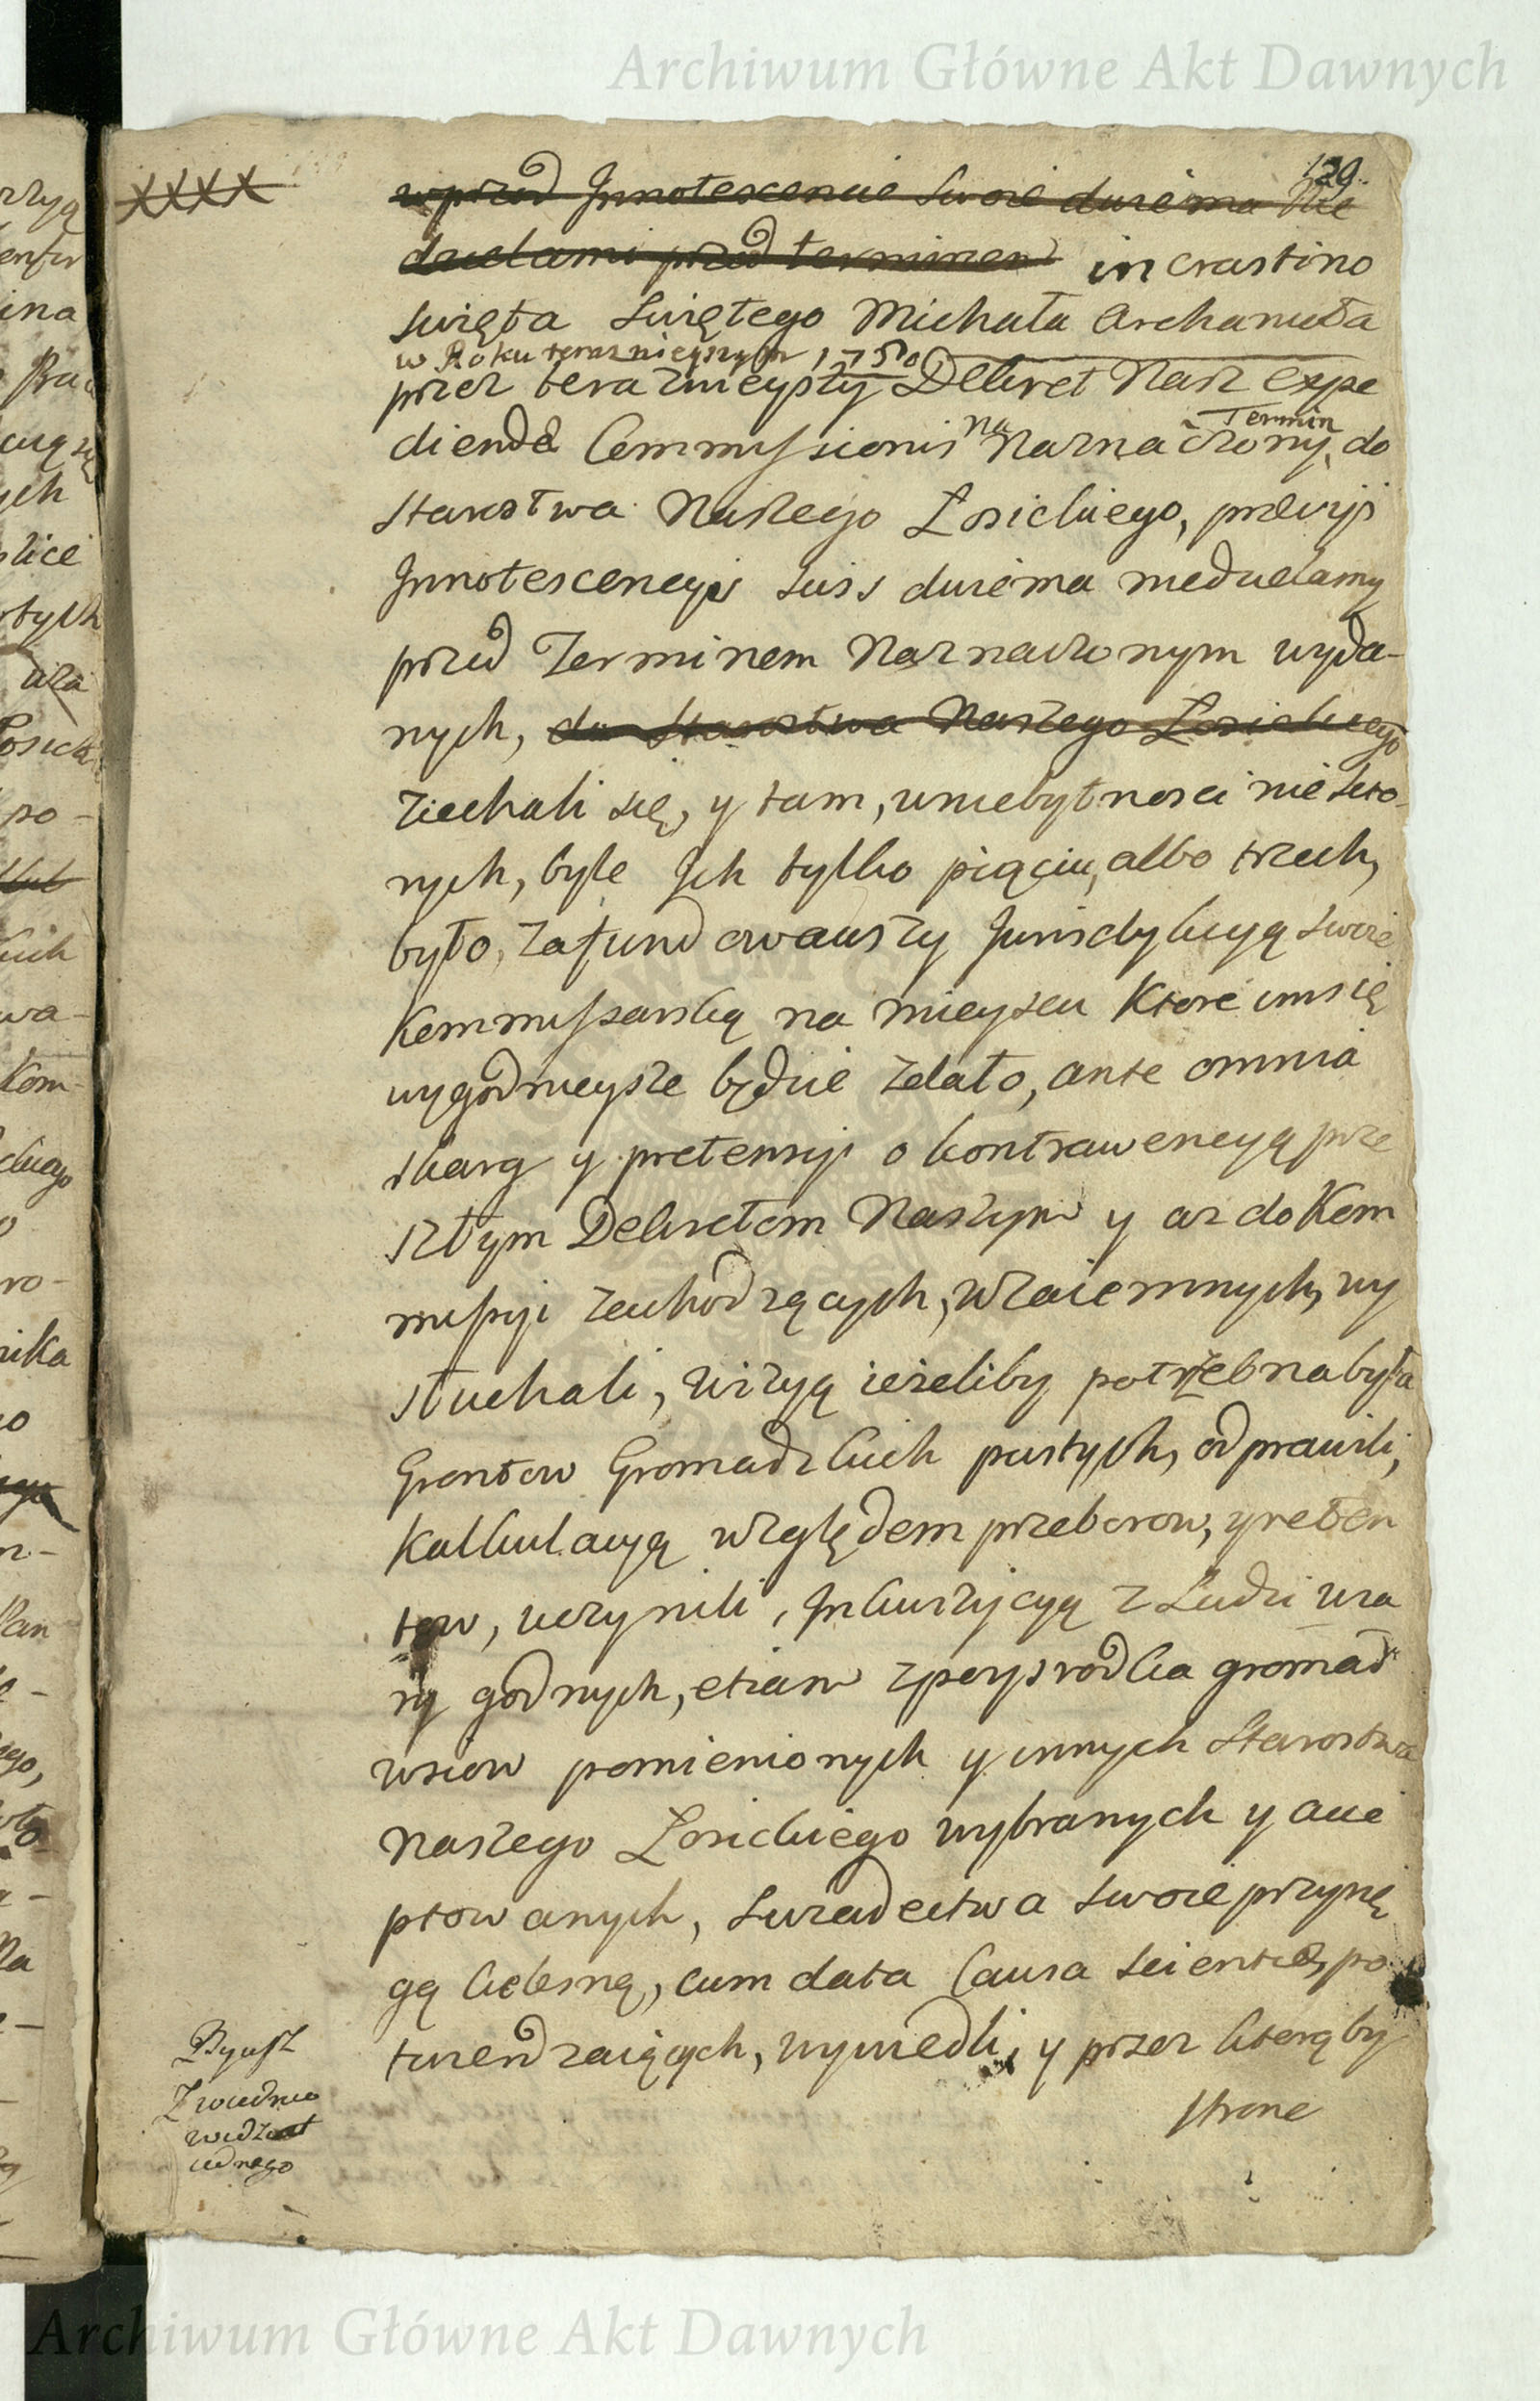 Archiwum Główne Akt Dawnych
129.
wprzod Innotescencie swoie dwiema Nie
dzielami przed terminem in crastino
swięta Swiętego Michała Archanioła
w Roku teraznieyszym 1750
przez teraznieyszy Dekret Nasz expe
diendæ Commissionis na Naznaczony Termin, do
Starostwa Naszego Łosickiego, prævijs
Innotescencijs suis dwiema niedzielamy
przed Terminem Naznaczonym wyda-
nych, do Starostwa Naszego Łosickiego
Ziechali się, y tam, w niebytnosci niektó-
rych, byle Ich tylko pięciu, albo trzech,
było, zafundowawszy Jurisdykcyą swoię
Kommissarską na mieyscu Ktore im się
wygodnieysze będzie zdało, ante omnia
skarg y pretensyi o kontrawencyą prze
szłym Dekretom Naszym y az do Kom
missyi zachodzących, wzaiemnych, wy
słuchali, wizyą ieżeliby potrzebna była
Gruntow Gromadzkich pustych, odprawili,
Kalkulacyą względem przeborow, y reten
tow, uczynili, Inkwizycyą z Ludzi wia
ry godnych, etiam z posrzodka gromad
wsiow pomienionych y innych Starostwa
Naszego Łosickiego wybranych y acce
ptowanych, swiadectwa swoie przysię
gą cielesną, cum data causa scientiæ, po
twierdzaiących, wywiedli, y przez ktorąby
strone
XXXX
jednego
Archiwum Główne Akt Dawnych